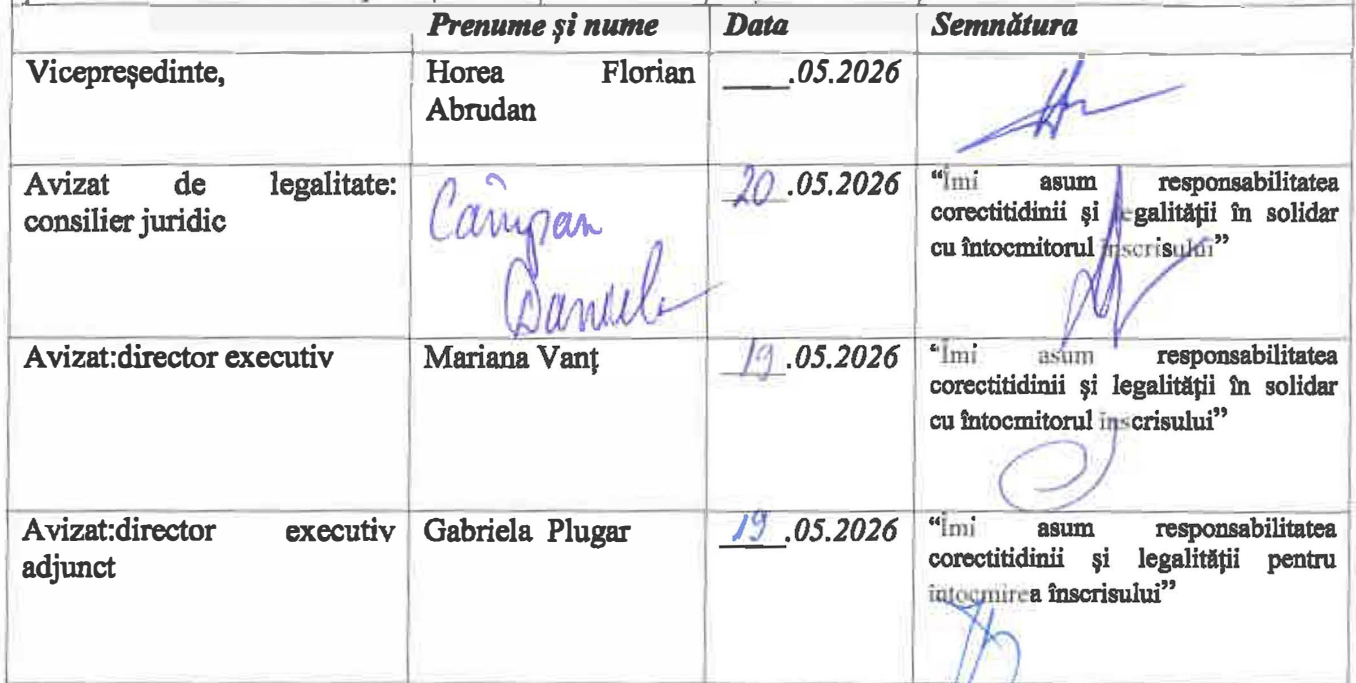 Prenume și nume Data Semnătura
Vicepreședinte, Horea Florian ____.05.2026
Abrudan
Avizat de legalitate: Câmpan 20.05.2026 “Îmi asum responsabilitatea
consilier juridic Daniela corectitidinii și legalității în solidar
cu întocmitorul înscrisului”
Avizat:director executiv Mariana Vanț 19.05.2026 “Îmi asum responsabilitatea
corectitidinii și legalității în solidar
cu întocmitorul înscrisului”
Avizat:director executiv Gabriela Plugar 19.05.2026 “Îmi asum responsabilitatea
adjunct corectitidinii și legalității pentru
întocmirea înscrisului”